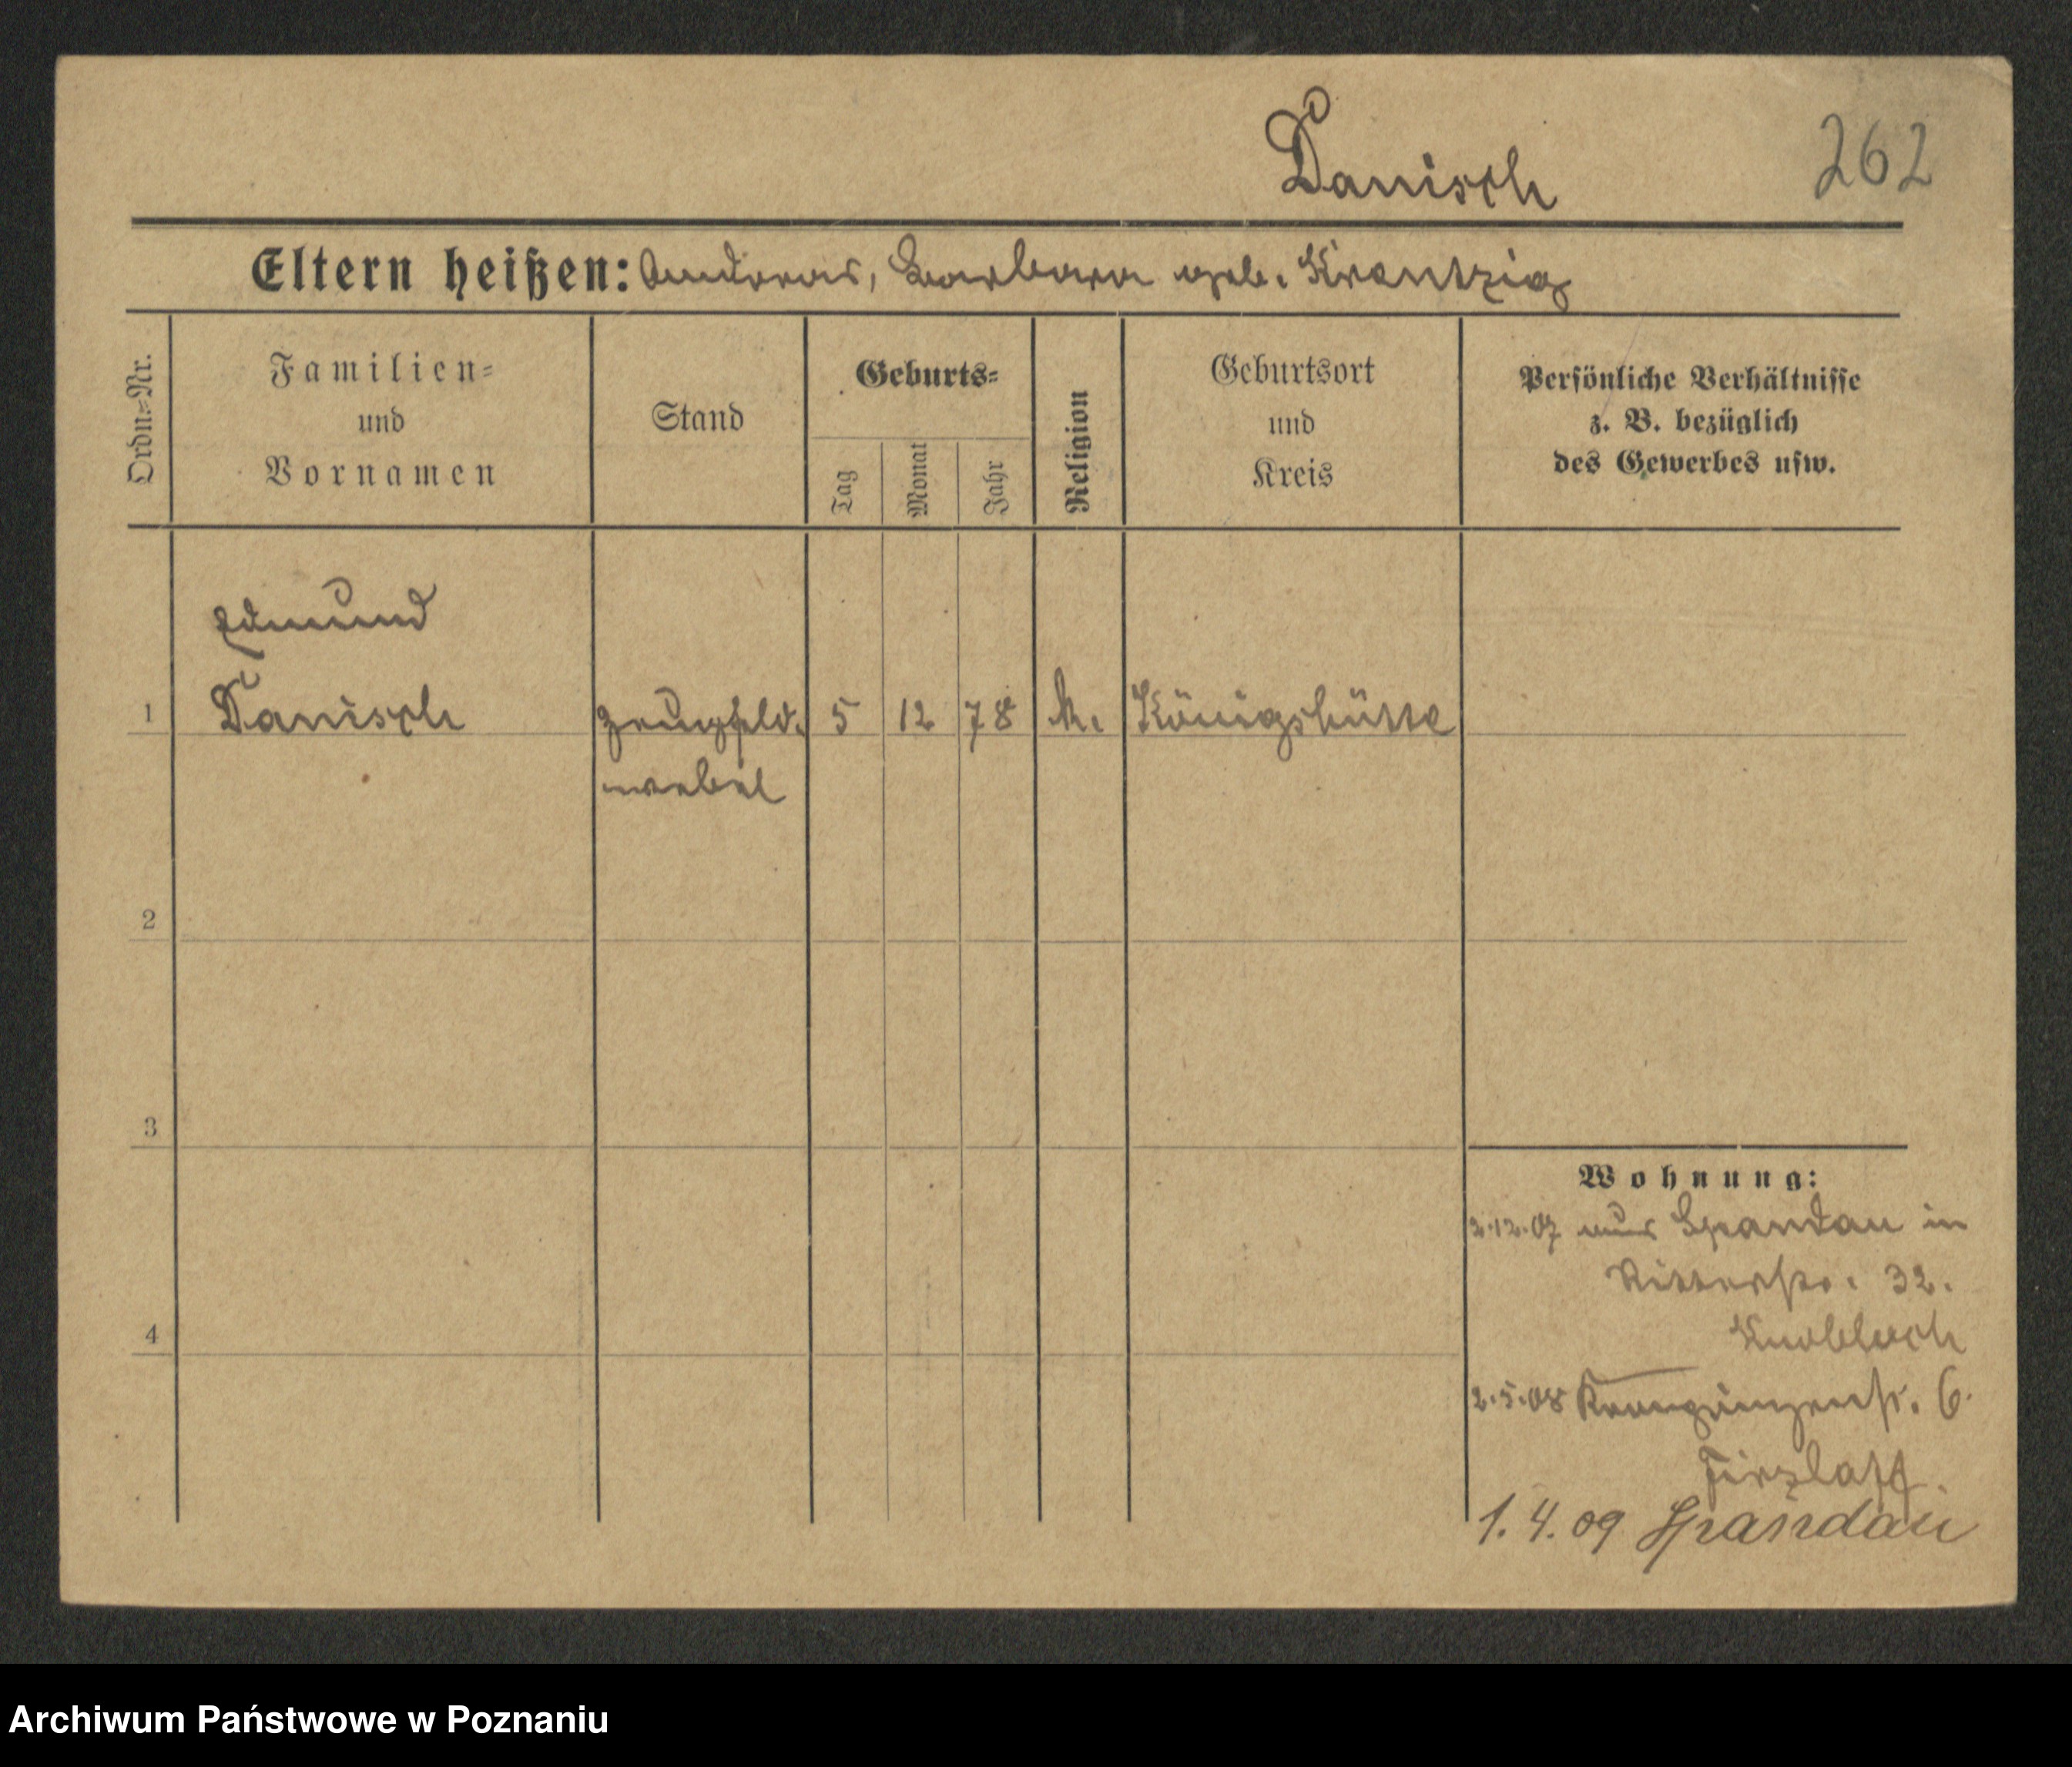 Danisch 262
Eltern heißen: Andreas, Barbara geb. Krantzig
Ordn=Nr.
Familien=
und
Vornamen
Stand
Geburts=
Tag
Monat
Jahr
Religion
Geburtsort
und
Kreis
Persönliche Verhältnisse
z. B. bezüglich
des Gewerbes usw.
Edmund
1 Danisch Zeugfeld. 5 12 78 k. Königshütte
webel
2
3
4
Wohnung:
2.12.07 aus Spandau in
Ritterstr. 32.
Knobloch
2.5.08 6.
Tirzlaff
1.4.09 Spandau
Archiwum Państwowe w Poznaniu